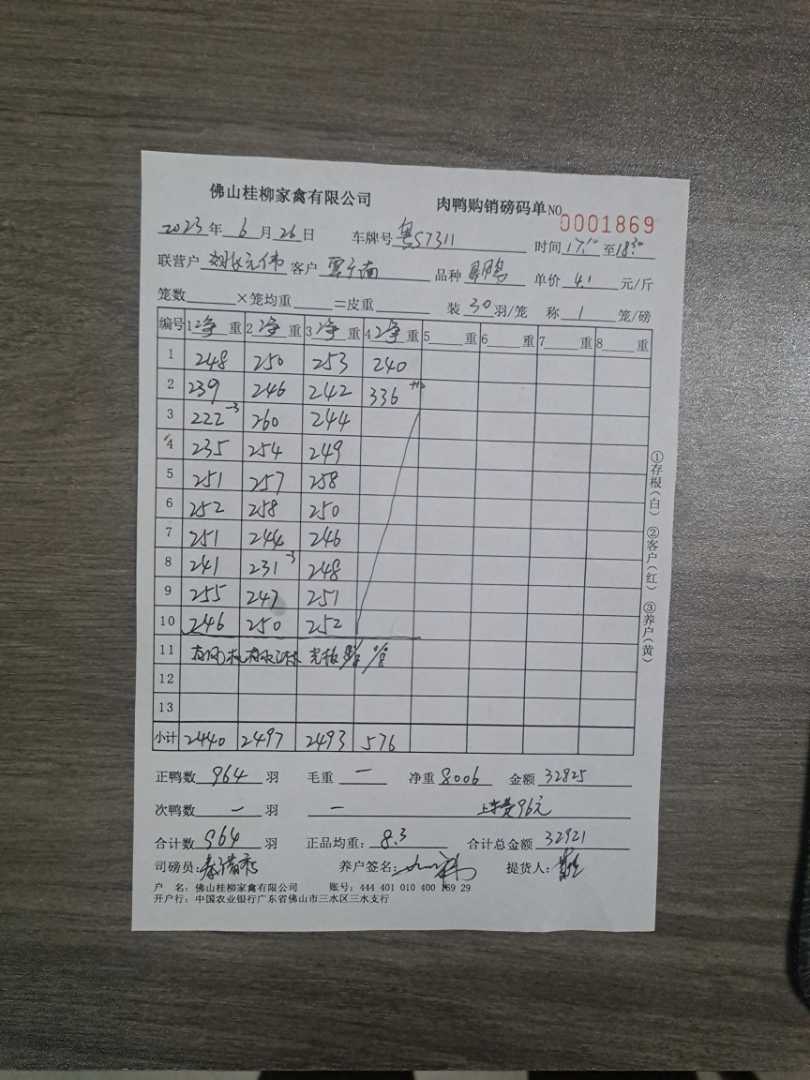 佛山桂柳家禽有限公司 肉鸭购销磅码单NO 0001869
2023年6月26日 车牌号 粤S7311 时间 17:10 至 18:30
联营户 客户 品种 单价 4.1 元/斤
笼数 ×笼均重 =皮重 装 30 羽/笼 称 1 笼/磅
编号 1净重 2净重 3净重 4净重 5 重 6 重 7 重 8 重
1 248 250 253 240
2 239 246 242 336
3 222-3 260 244
4 235 254 249
5 251 257 258
6 252 258 250
7 251 244 246
8 241 231-3 248
9 255 247 251
10 246 250 252
11
12
13
小计 2440 2497 2493 576
正鸭数 964 羽 毛重 — 净重 8006 金额 32825
次鸭数 — 羽 — 上车费96元
合计数 964 羽 正品均重: 8.3 合计总金额 32921
司磅员: 养户签名: 提货人:
户 名: 佛山桂柳家禽有限公司 账号: 444 401 010 400 169 29
开户行: 中国农业银行广东省佛山市三水区三水支行
①存根(白) ②客户(红) ③养户(黄)